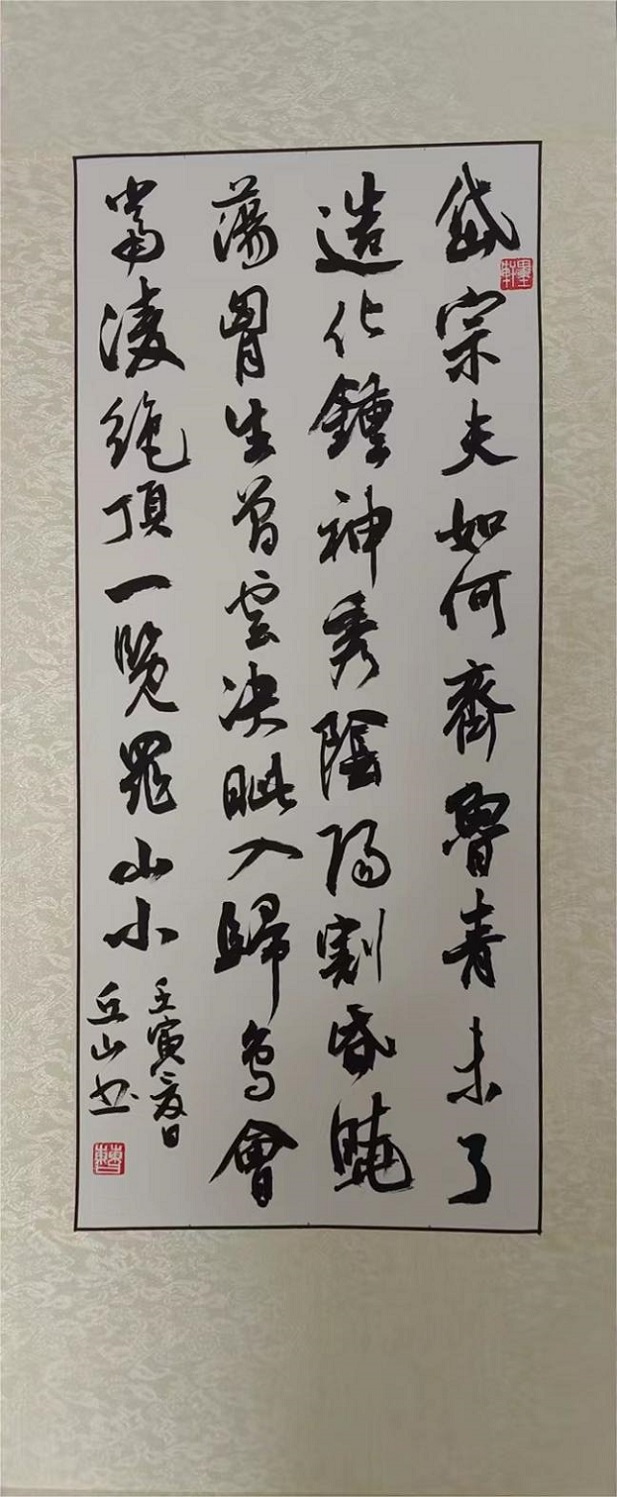 岱宗夫如何齊魯青未了
墨軒
造化鍾神秀陰陽割昏曉
蕩胷生曾雲决眦入歸鳥會
當凌絕頂一覽眾山小
壬寅夏日
丘山书